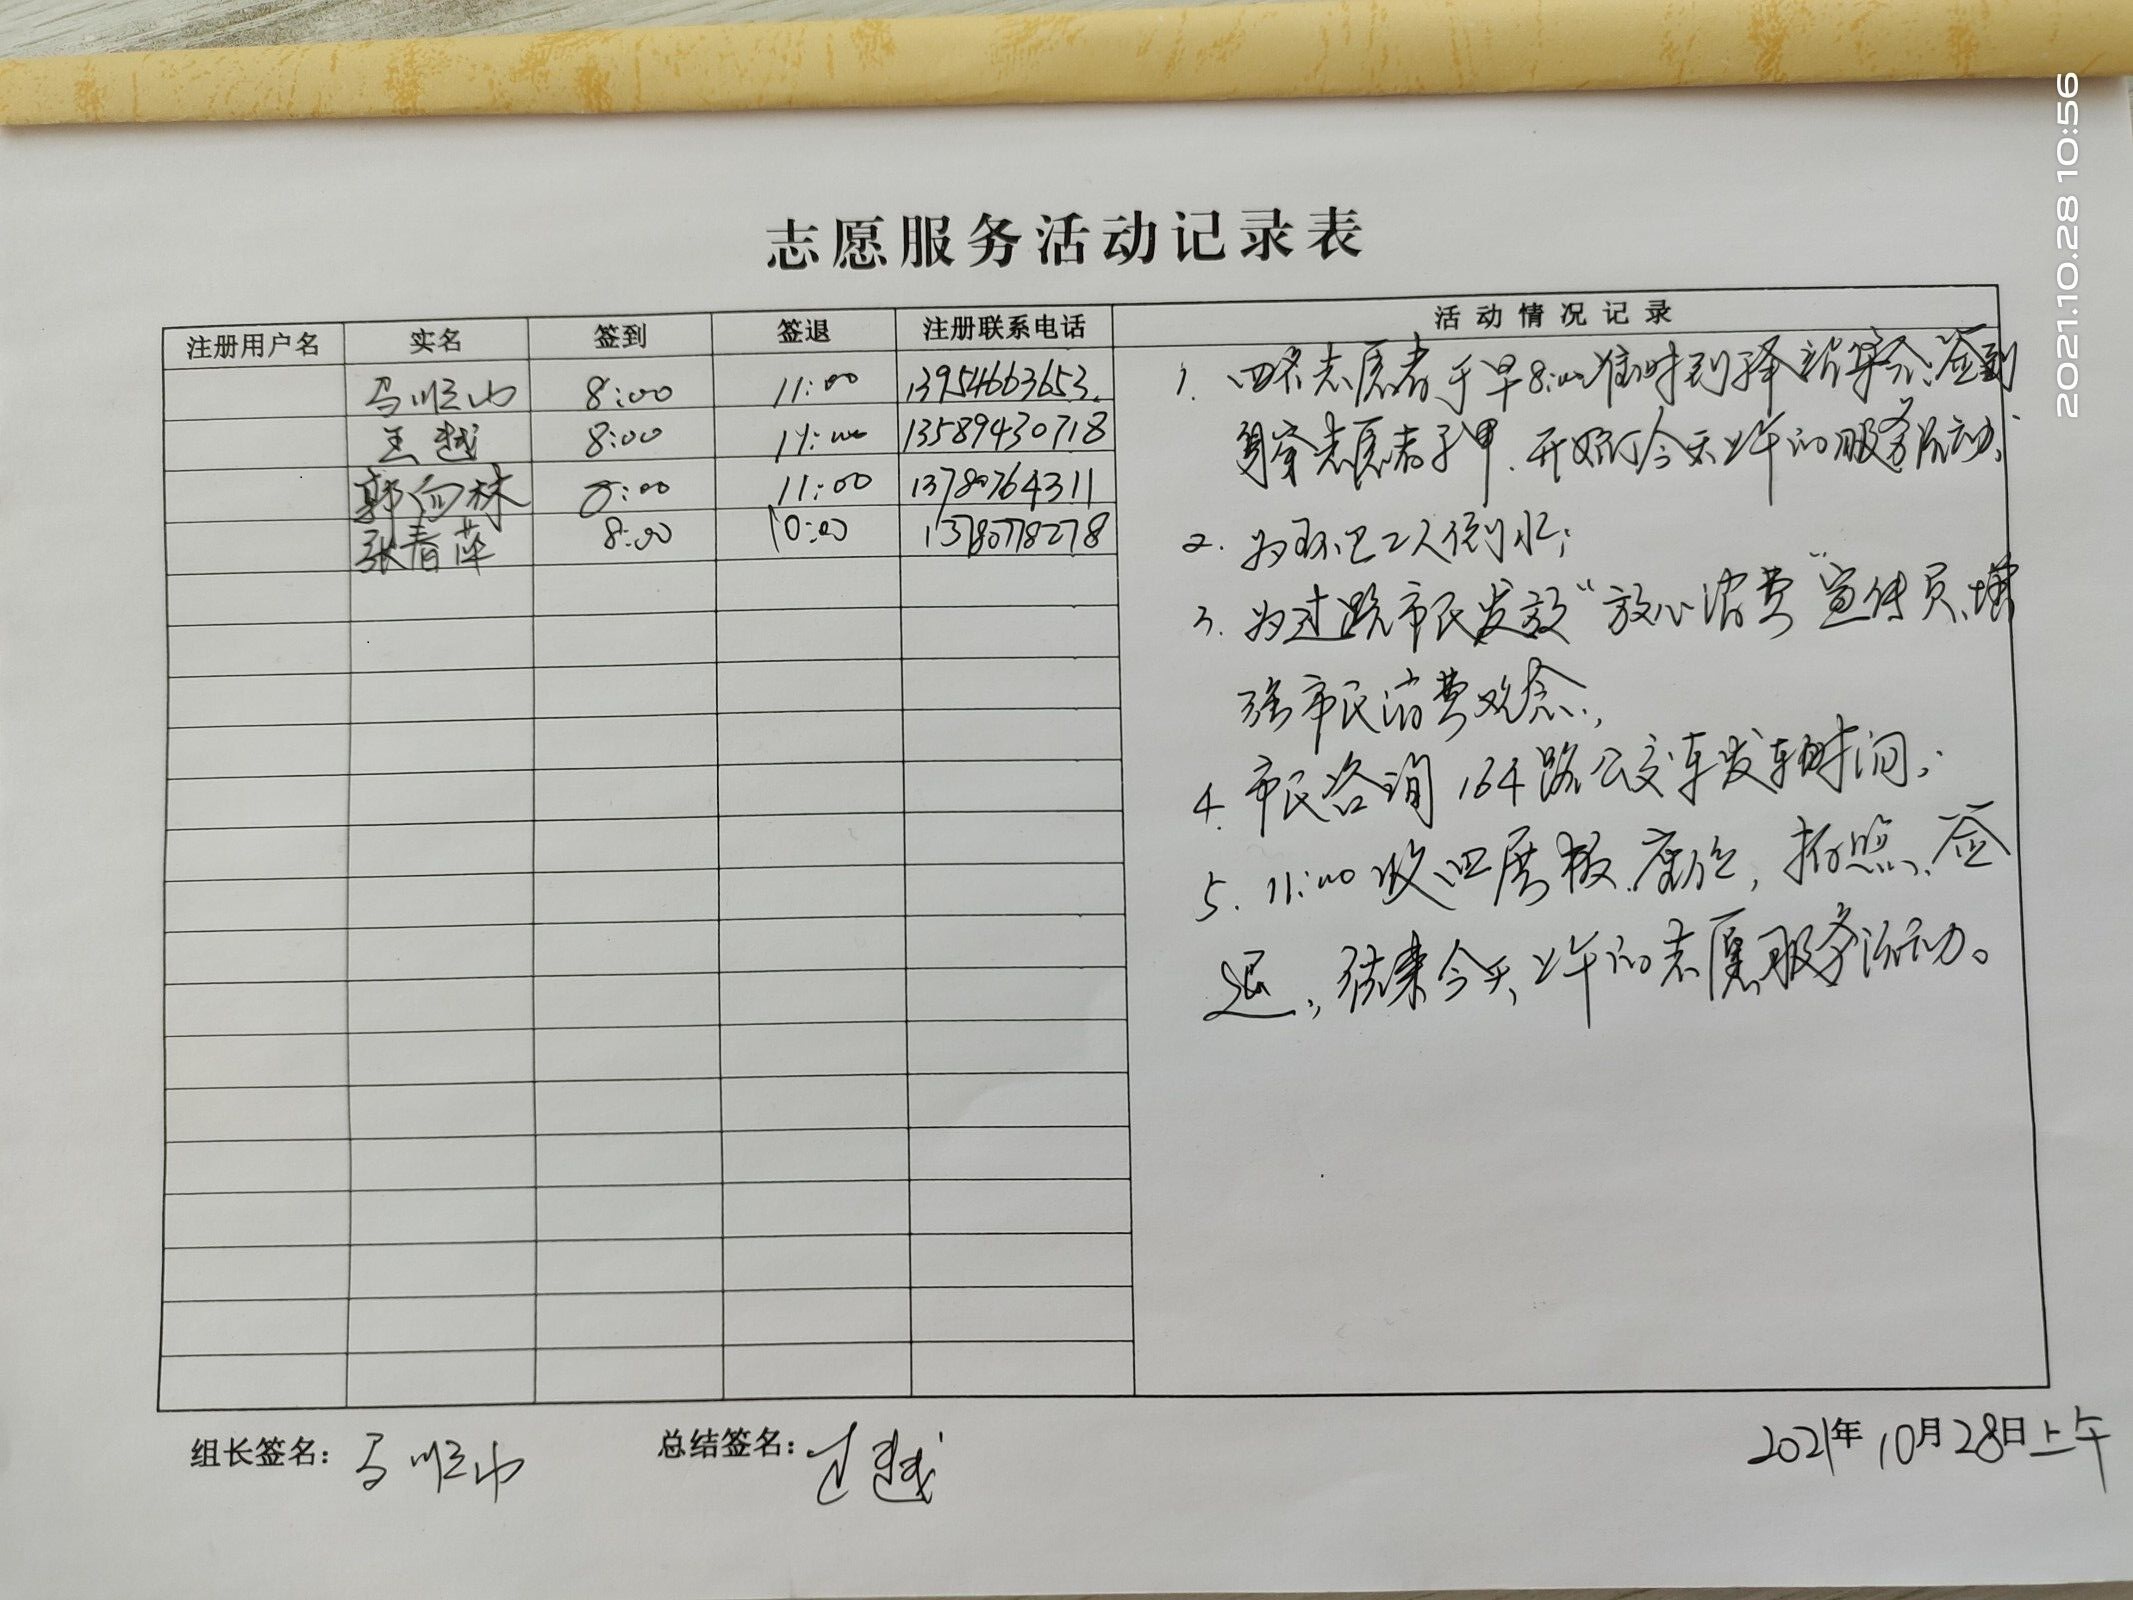 2021.10.28 10:56
志愿服务活动记录表
注册用户名 实名 签到 签退 注册联系电话 活动情况记录
马顺山 8:00 11:00 13954663653
王越 8:00 11:00 13589430718
郭向林 8:00 11:00 13780764311
张春萍 8:00 10:00 13780778278
1. 四名志愿者于早8:00准时到 签到
穿志愿者 开始了今天上午的服务活动;
2. 为环卫工人倒水;
3. 为过路市民发放“放心消费”宣传页、增
强市民消费观念;
4. 市民咨询164路公交车发车时间;
5. 11:00收回展板、座位,拍照、签
退,结束今天上午的志愿服务活动。
组长签名: 马顺山 总结签名: 王越 2021年10月28日上午